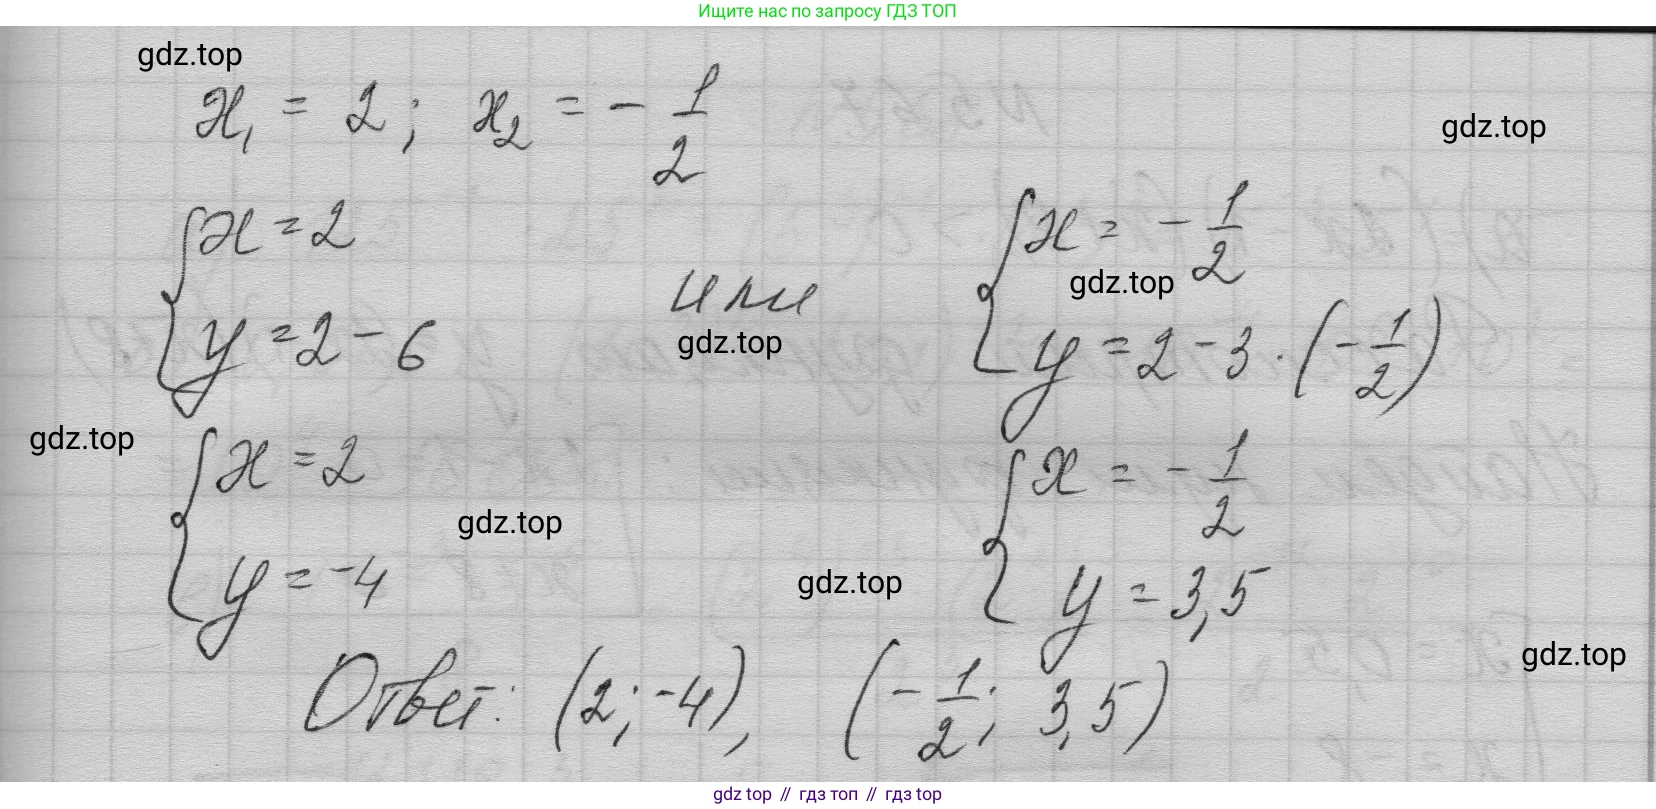 Ищите нас по запросу ГДЗ ТОП
gdz.top
x₁ = 2; x₂ = - 1/2
gdz.top
{ x = 2
y = 2 - 6
или
{ x = - 1/2
y = 2 - 3 · (- 1/2)
gdz.top
gdz.top
gdz.top
{ x = 2
y = -4
{ x = - 1/2
y = 3,5
gdz.top
gdz.top
gdz.top
Ответ: (2; -4), (- 1/2; 3,5)
gdz top // гдз топ // gdz top